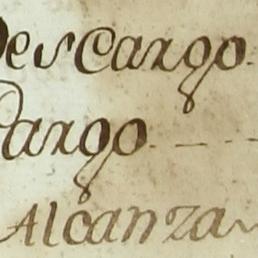 Descargo
Cargo
Alcanza